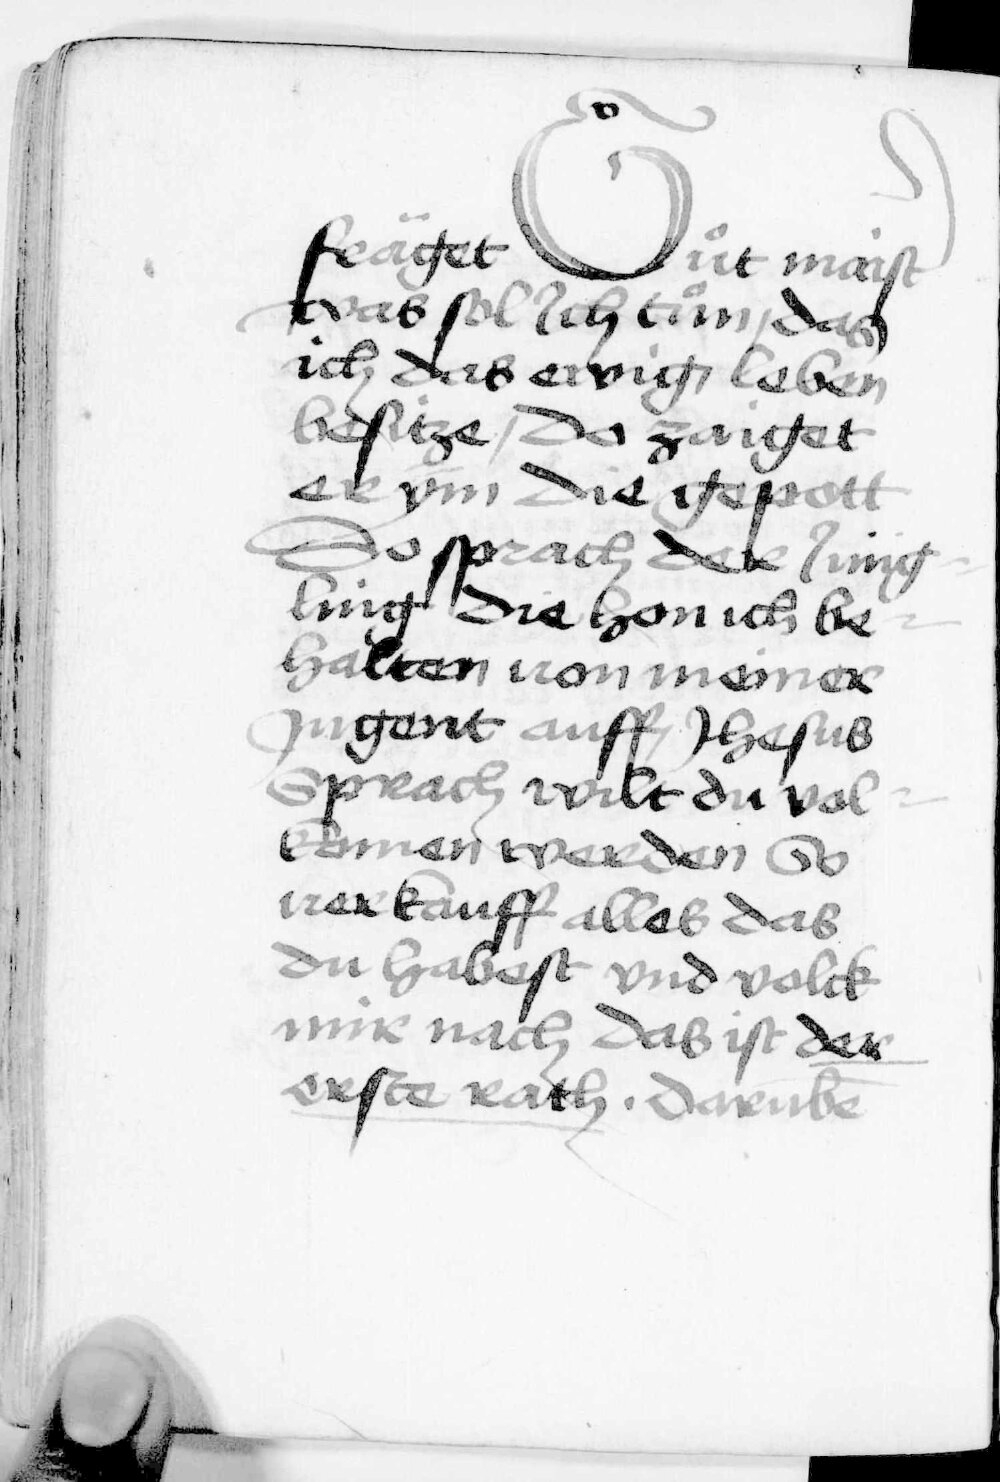 fräget Gůt maist
was sol Ich tůn / das
ich das ewig leben
besitze / Do zaiget
er ym̄ die gepott
Do sprach der Jüng-
ling die hon ich be-
halten von meiner
Jugent auff Jhesus
Sprach wilt du vol-
komen werden So
verkauff alles das
du habest vnd volck
mir nach das ist der
erste rath . Darubē